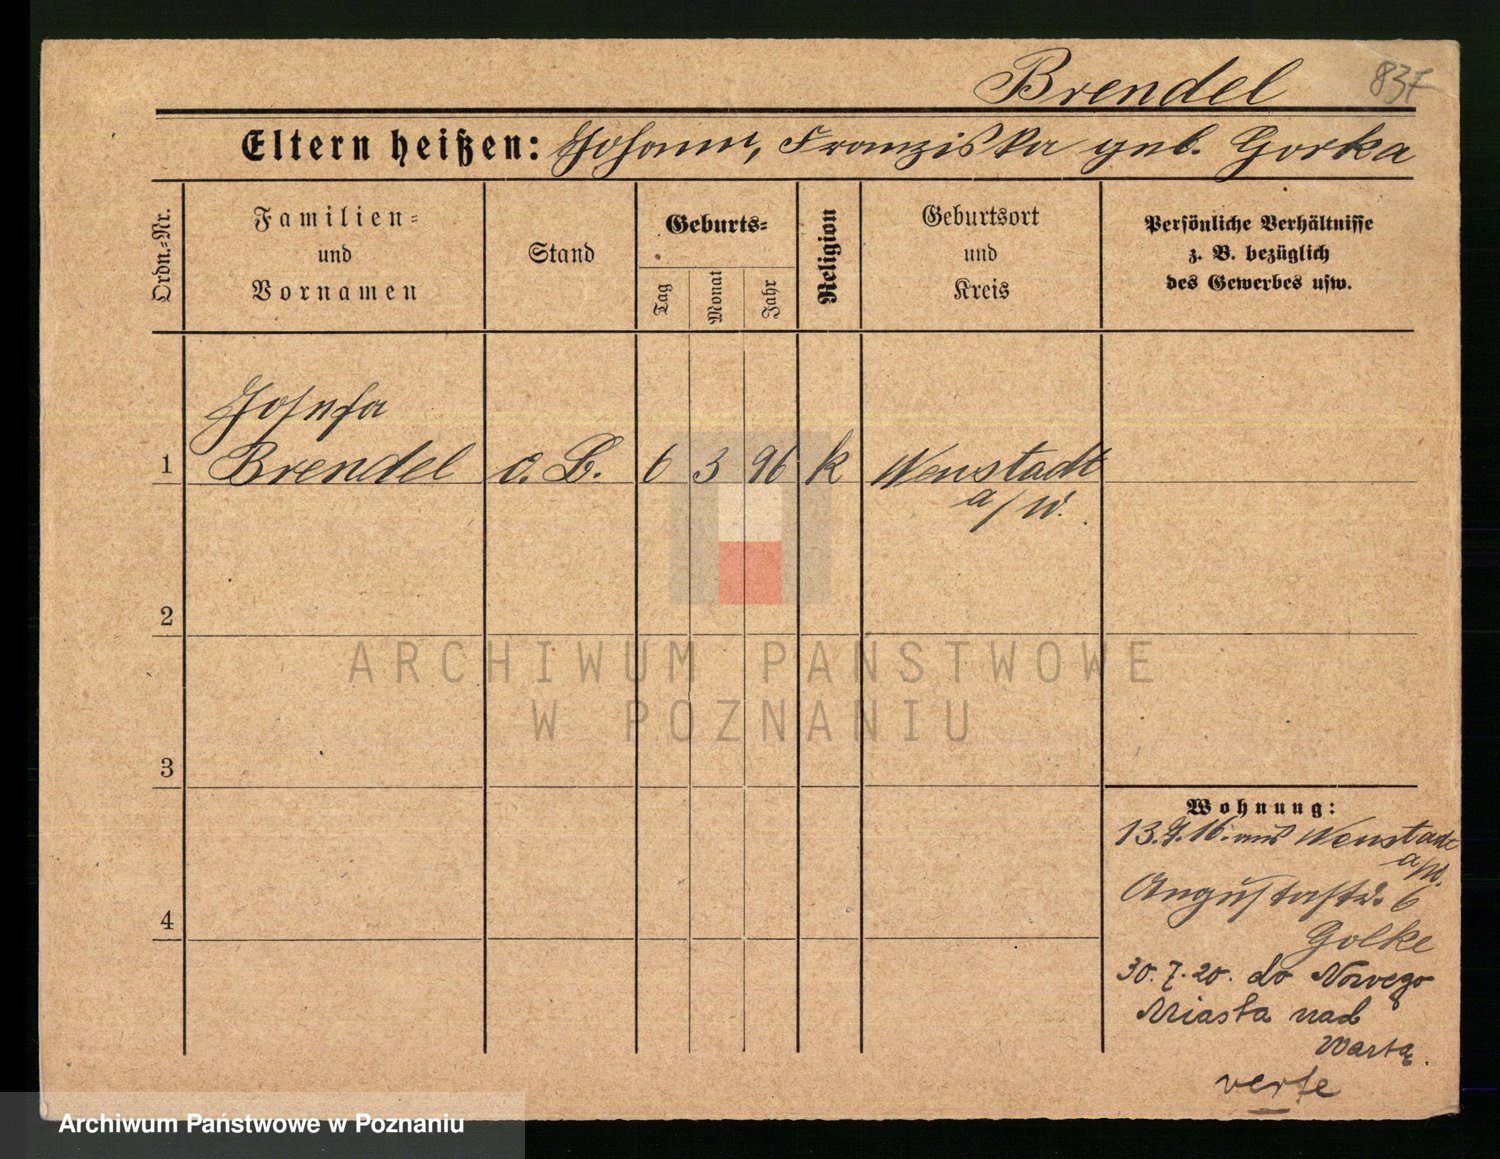 Brendel 837
Eltern heißen: Johann, Franziska geb. Gorka
Ordn.=Nr.
Familien=
und
Vornamen
Stand
Geburts=
Tag
Monat
Jahr
Religion
Geburtsort
und
Kreis
Persönliche Verhältnisse
z. B. bezüglich
des Gewerbes usw.
Josefa
1 Brendel o. B. 6 3 96 k Neustadt
a/W.
2
3
4
Wohnung:
13.9.16. aus Neustadt
a/W.
Augustastr. 6
Golke
30.7.20. do Nowego
Miasta nad
Wartą.
verte
ARCHIWUM PAŃSTWOWE
W POZNANIU
Archiwum Państwowe w Poznaniu